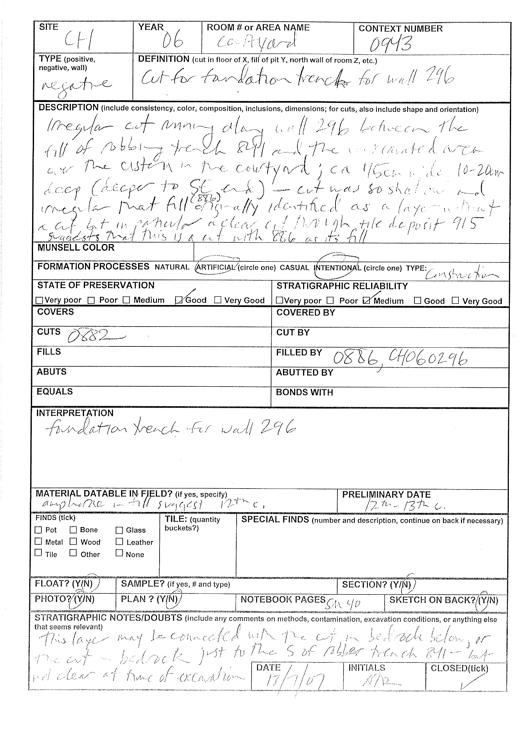 SITE YEAR ROOM # or AREA NAME CONTEXT NUMBER
CH 06 Courtyard 0943
TYPE (positive, negative, wall) DEFINITION (cut in floor of X, fill of pit Y, north wall of room Z, etc.)
negative Cut for foundation trench for wall 296
DESCRIPTION (include consistency, color, composition, inclusions, dimensions; for cuts, also include shape and orientation)
Irregular cut running along wall 296 between the
fill of robbing trench 841 and the unexcavated area
over the cistern in the courtyard; ca 45cm wide 10-20cm
deep (deeper to SE end) – cut was so shallow and
irregular that fill (886) originally identified as a layer without
a cut, but in particular a clear cut through tile deposit 915
suggests that this is a cut with 886 as its fill
MUNSELL COLOR
FORMATION PROCESSES NATURAL ARTIFICIAL (circle one) CASUAL INTENTIONAL (circle one) TYPE: Construction
STATE OF PRESERVATION STRATIGRAPHIC RELIABILITY
Very poor Poor Medium Good Very Good Very poor Poor Medium Good Very Good
COVERS COVERED BY
CUTS 0882 CUT BY
FILLS FILLED BY 0886, CH060296
ABUTS ABUTTED BY
EQUALS BONDS WITH
INTERPRETATION
foundation trench for wall 296
MATERIAL DATABLE IN FIELD? (if yes, specify) PRELIMINARY DATE
amphorae in fill suggest 12th c. 12th-13th c.
FINDS (tick) TILE: (quantity buckets?) SPECIAL FINDS (number and description, continue on back if necessary)
Pot Bone Glass
Metal Wood Leather
Tile Other None
FLOAT? (Y/N) SAMPLE? (if yes, # and type) SECTION? (Y/N)
PHOTO? (Y/N) PLAN ? (Y/N) NOTEBOOK PAGES 40 SKETCH ON BACK? (Y/N)
STRATIGRAPHIC NOTES/DOUBTS (include any comments on methods, contamination, excavation conditions, or anything else that seems relevant)
This layer may be connected with the cut in bedrock below, or
the cut in bedrock just to the S of robber trench 841 – but
not clear at time of excavation
DATE INITIALS CLOSED(tick)
17/7/07